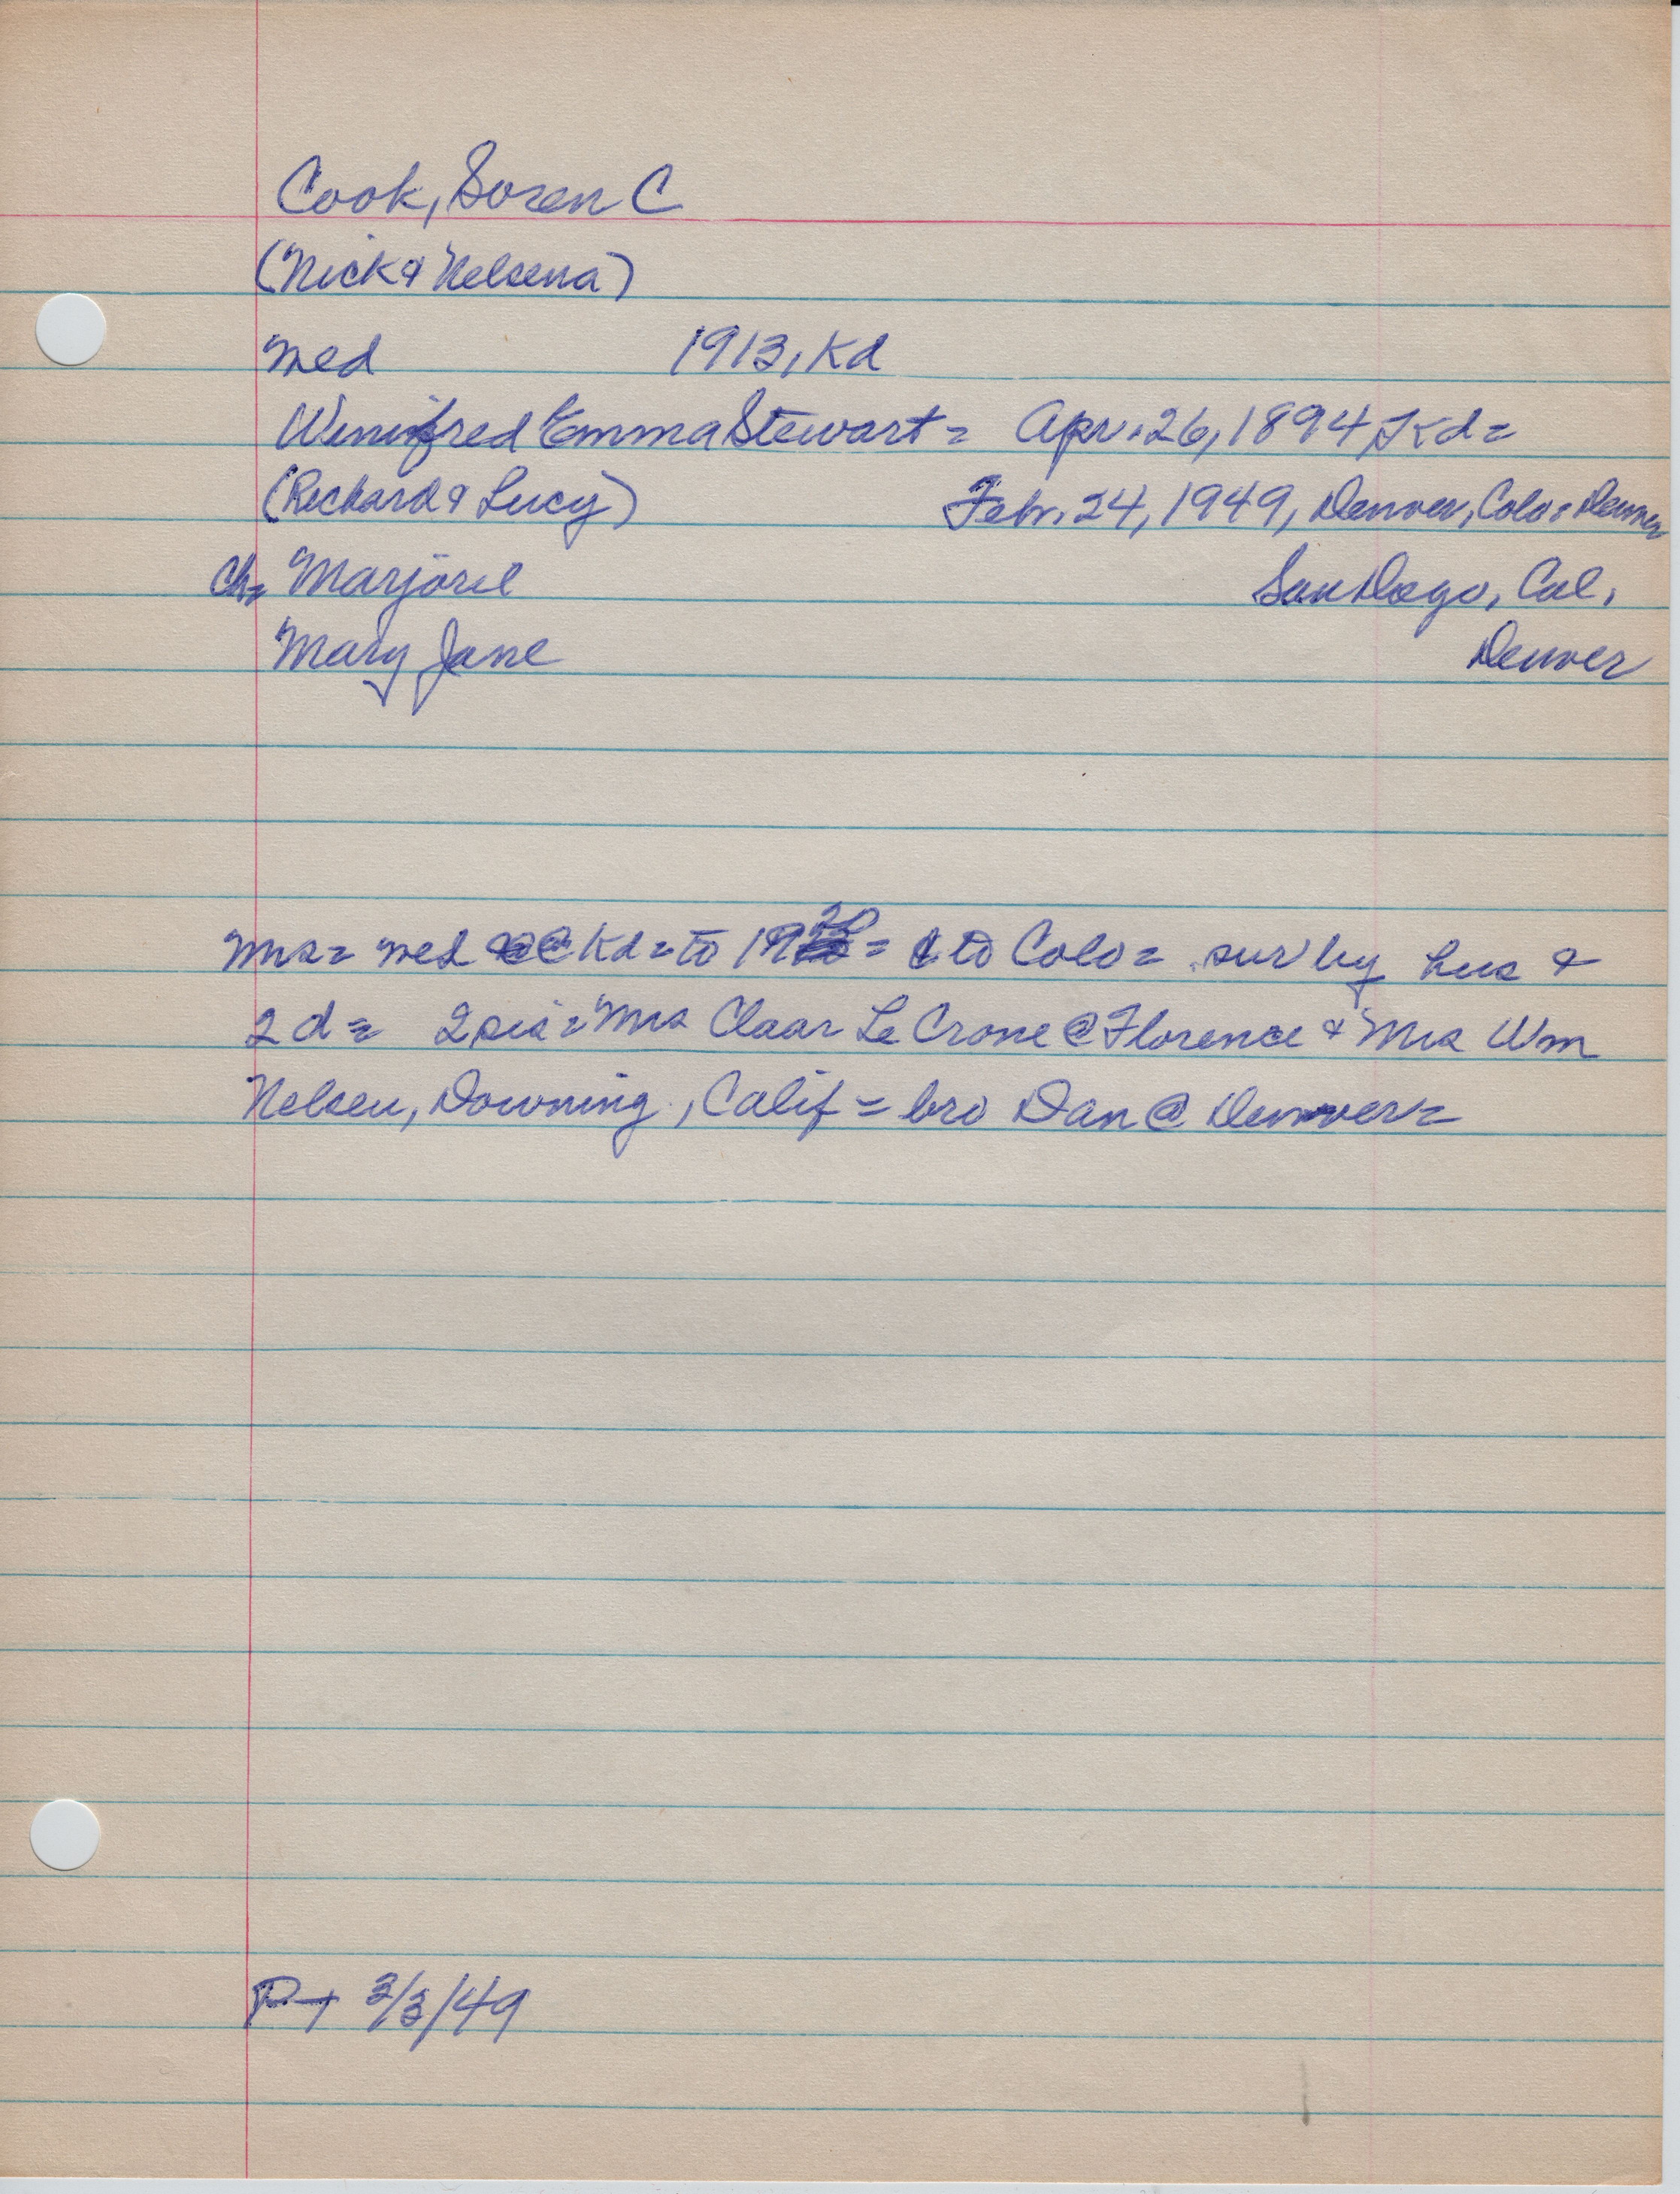 Cook, Soren C
(Nick & Nelsena)
med 1913, Kd
Winifred Emma Stewart = Apr. 26, 1894, Kd =
(Richard & Lucy) Feb. 24, 1949, Denver, Colo = Denver
Ch = Marjorie San Diego, Cal.
Mary Jane Denver
Mrs = med @ Kd = to 1920 = to Colo = sur by hus &
2 d = 2 sis = Mrs Claar Le Crone @ Florence & Mrs Wm
Nelsen, Downing, Calif = bro Dan @ Denver =
3/3/49